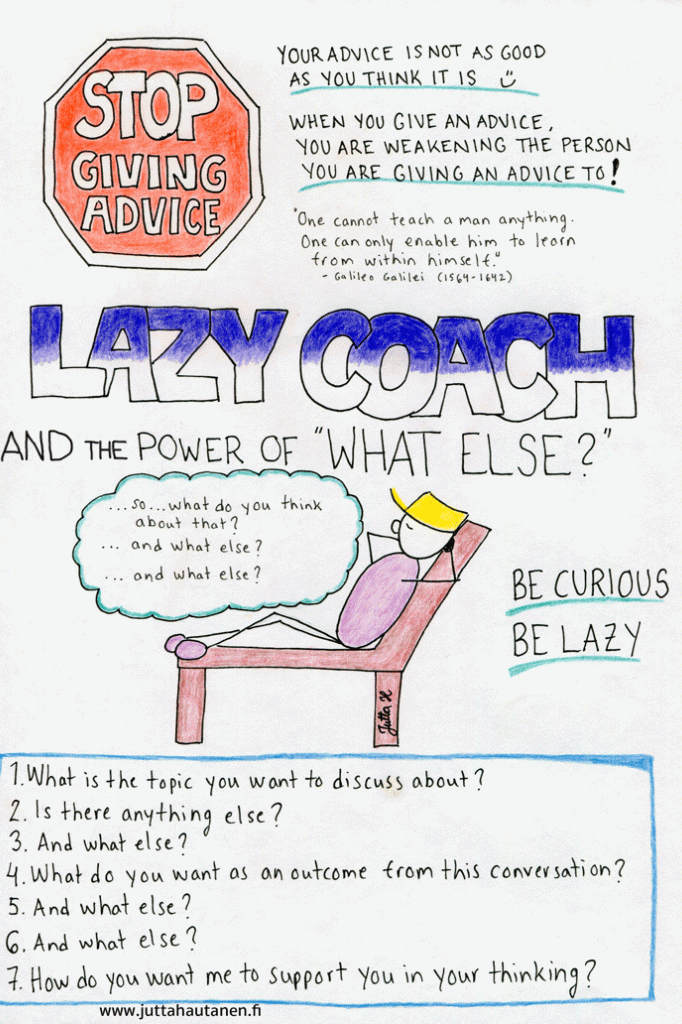 STOP
GIVING
ADVICE
YOUR ADVICE IS NOT AS GOOD
AS YOU THINK IT IS
WHEN YOU GIVE AN ADVICE,
YOU ARE WEAKENING THE PERSON
YOU ARE GIVING AN ADVICE TO!
"One cannot teach a man anything.
One can only enable him to learn
from within himself."
- Galileo Galilei (1564-1642)
LAZY COACH
AND THE POWER OF "WHAT ELSE?"
...so...what do you think
about that?
... and what else?
... and what else?
BE CURIOUS
BE LAZY
Jutta H
1. What is the topic you want to discuss about?
2. Is there anything else?
3. And what else?
4. What do you want as an outcome from this conversation?
5. And what else?
6. And what else?
7. How do you want me to support you in your thinking?
www.juttahautanen.fi